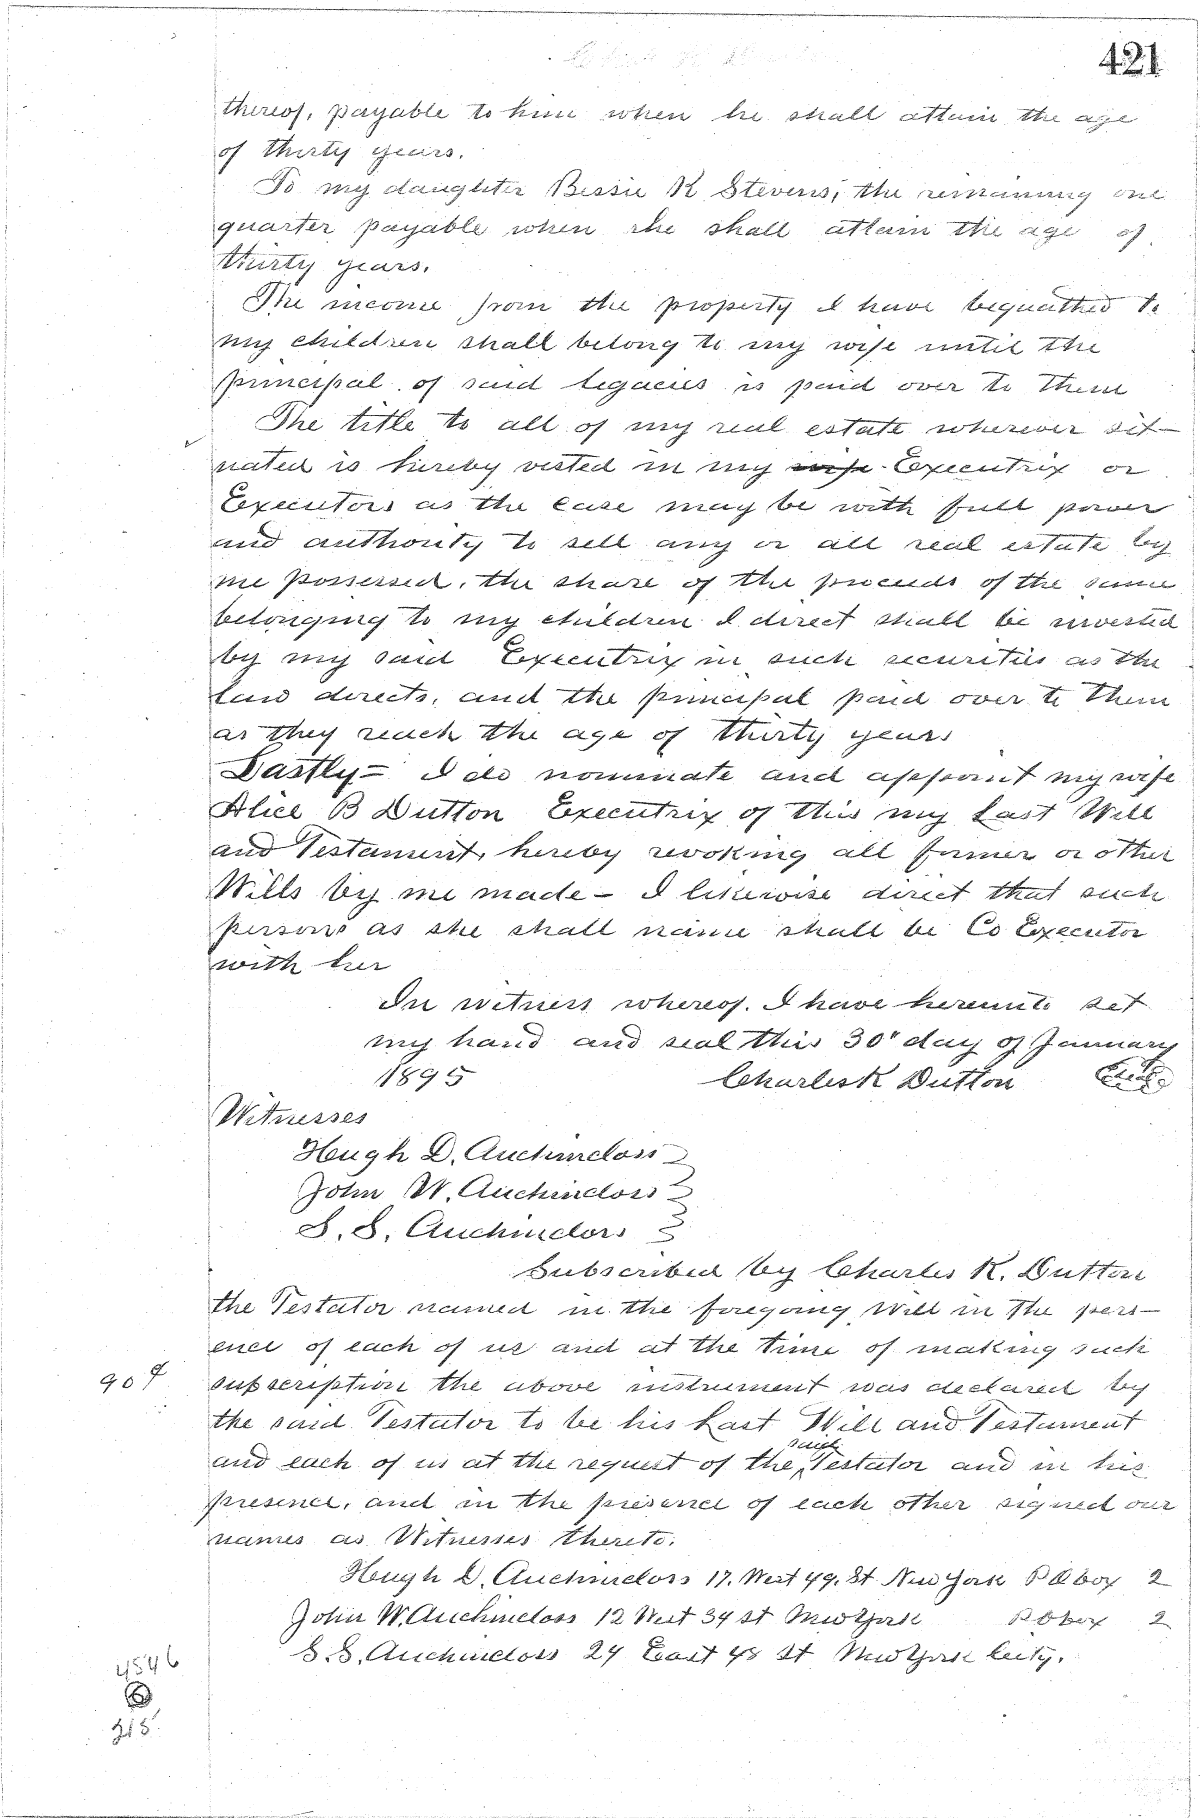 421
thereof, payable to him when he shall attain the age
of thirty years.
To my daughter Bessie K Stevens, the remaining one
quarter payable when she shall attain the age of
thirty years.
The income from the property I have bequathed to
my children shall belong to my wife until the
principal of said legacies is paid over to them
The title to all of my real estate wherever sit-
uated is hereby vested in my wife Executrix or
Executors as the case may be with full power
and authority to sell any or all real estate by
me possessed, the share of the proceeds of the same
belonging to my children I direct shall be invested
by my said Executrix in such securities as the
law directs, and the principal paid over to them
as they reach the age of thirty years
Lastly- I do nominate and appoint my wife
Alice B Dutton Executrix of this my Last Will
and Testament, hereby revoking all former or other
Wills by me made - I likewise direct that such
persons as she shall name shall be Co Executor
with her
In witness whereof, I have hereunto set
my hand and seal this 30" day of January
1895 Charles K Dutton Seal
Witnesses
Hugh D. Auchincloss
John W. Auchincloss
S. S. Auchincloss
Subscribed by Charles K. Dutton
the Testator named in the foregoing Will in the pers-
ence of each of us and at the time of making such
90 f subscription the above instrument was declared by
the said Testator to be his Last Will and Testament
and each of us at the request of the said Testator and in his
presence, and in the presence of each other signed our
names as Witnesses thereto.
Hugh D. Auchincloss 17. West 49. St New York P O box 2
John W. Auchincloss 12 West 34 st New York P O box 2
S. S. Auchincloss 24 East 48 st New York City.
4546
6
315